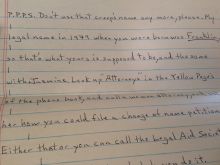 P.P.P.S. Don't use that creep's name any more, please. My
legal name in 1977 when you were born was Franklin,
so that's what yours is supposed to be, and the same
with Jasmine. Look up "Attorneys" in the Yellow Pages
of the phone book, and call a woman attorney, ask
her how you could file a change of name petition.
Either that or you can call the Legal Aid Society